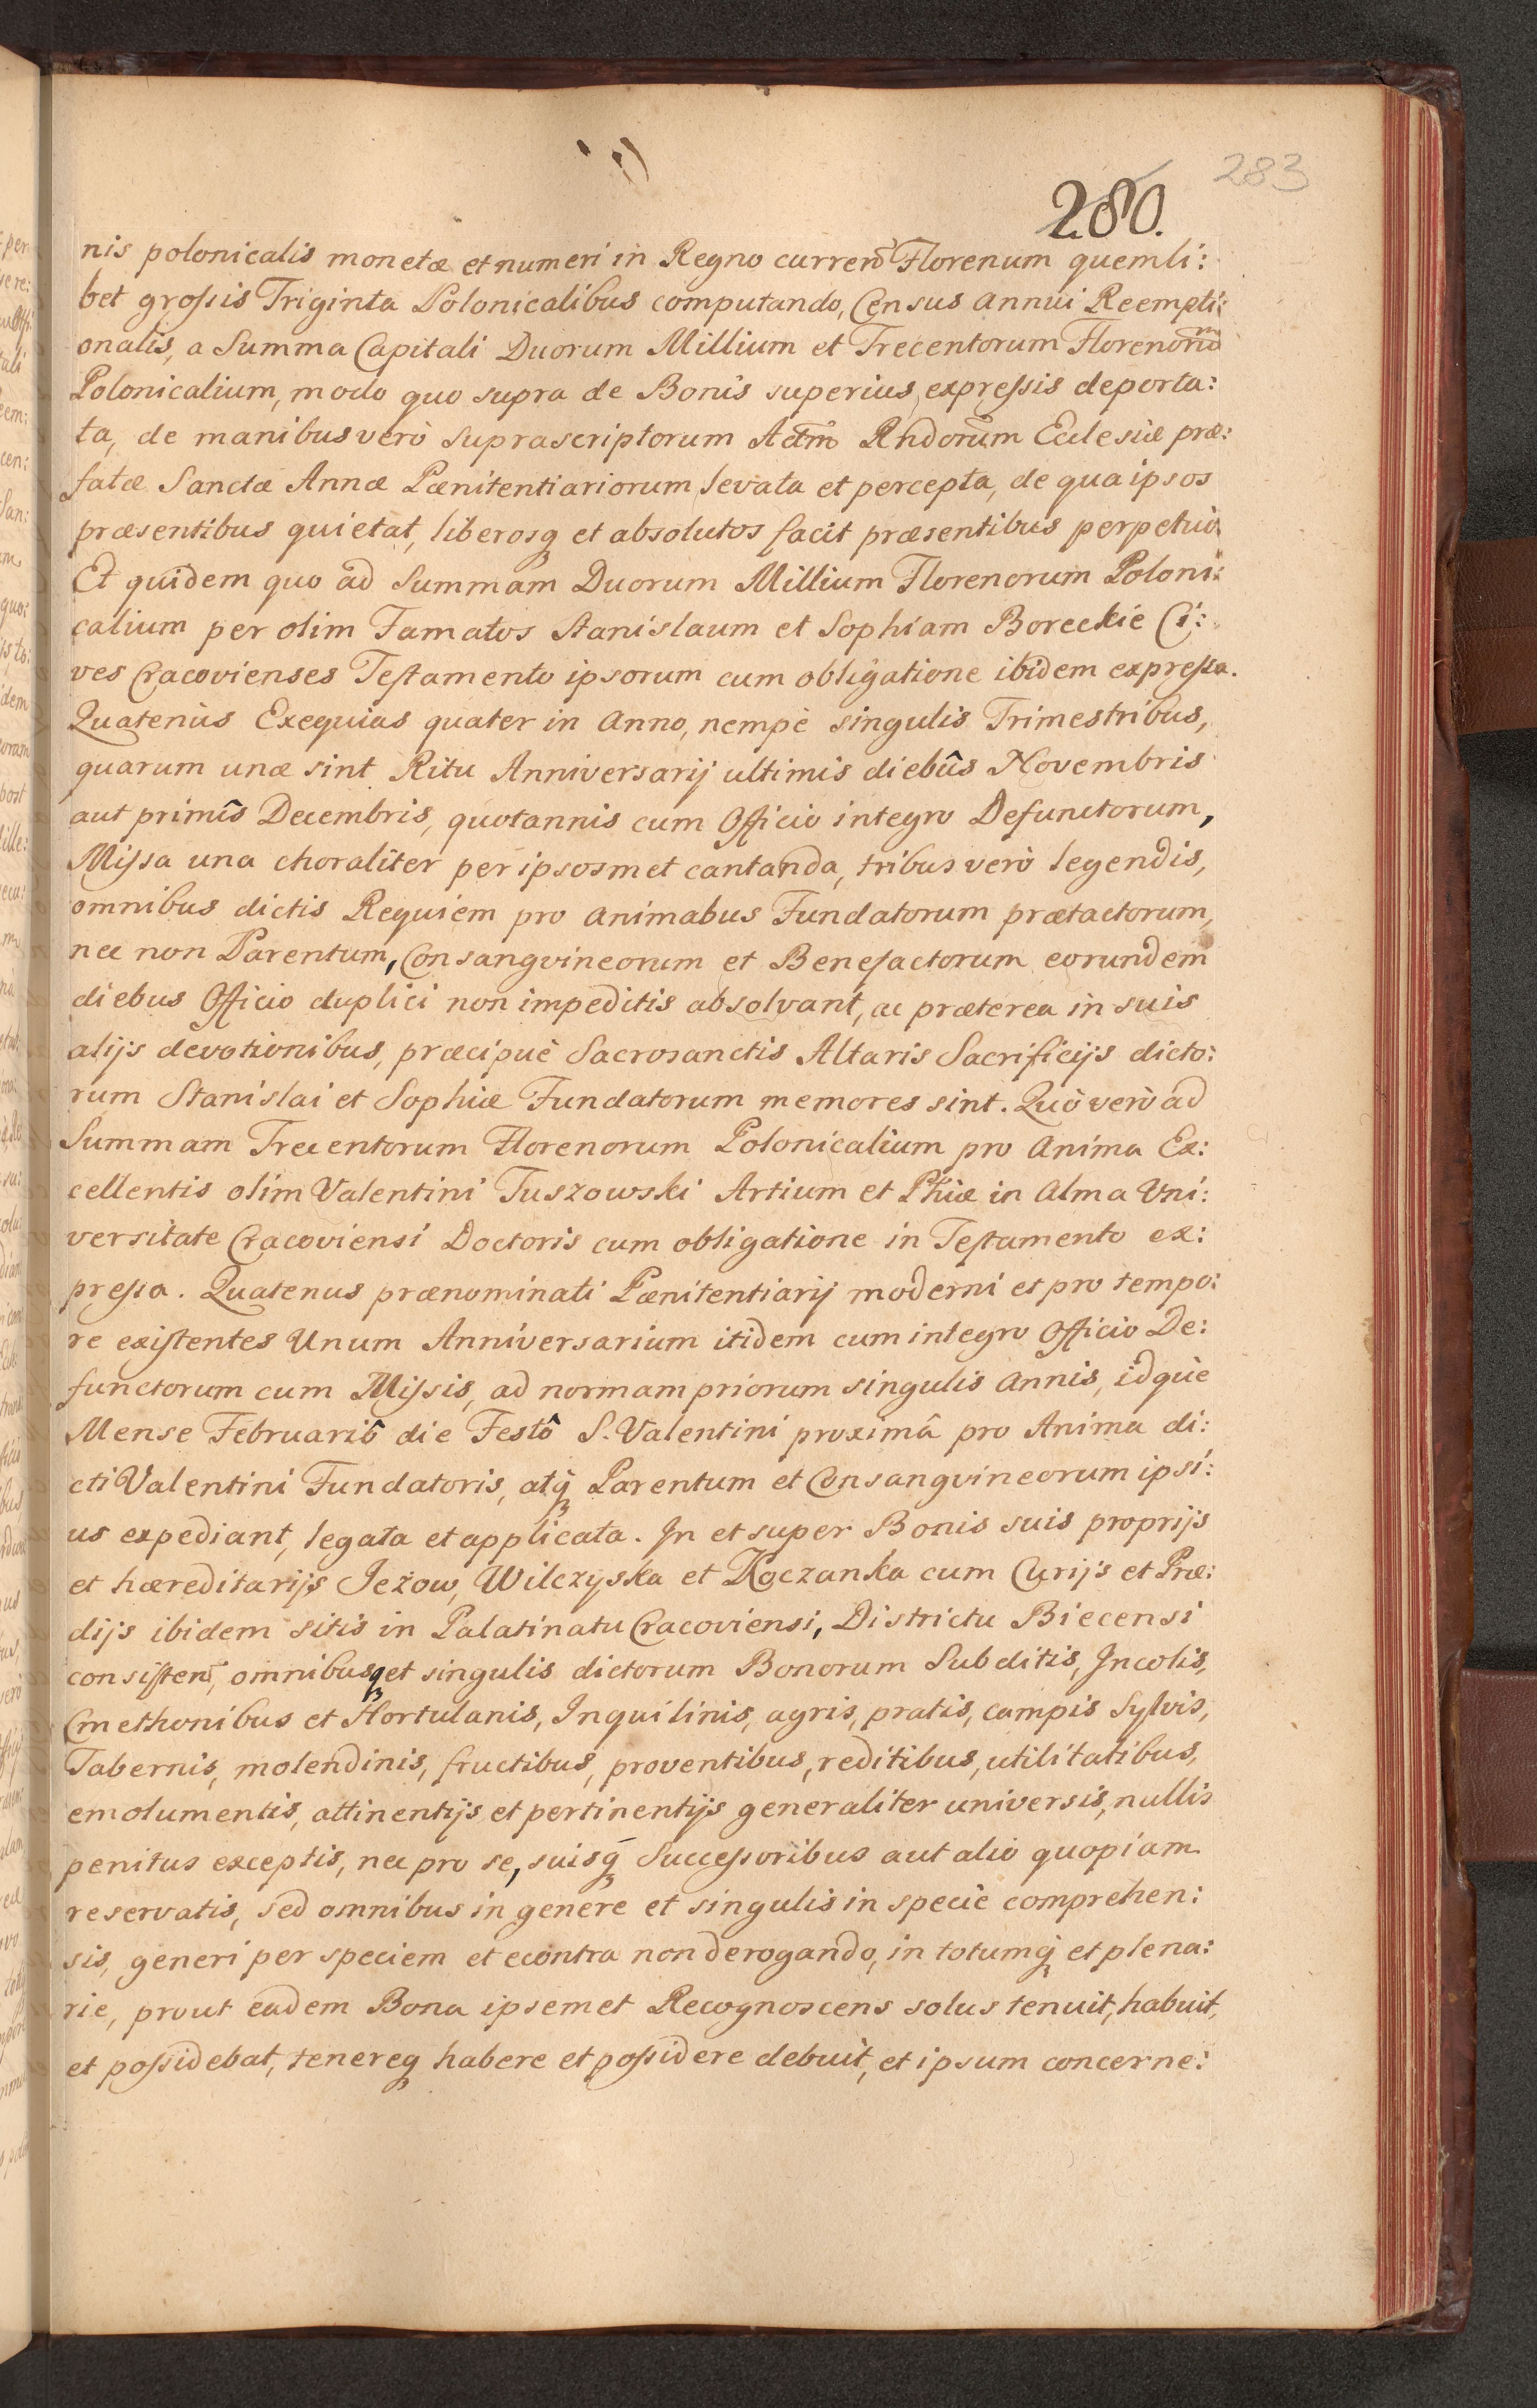 283
280.
nis polonicalis monetæ et numeri in Regno curren̄ Florenum quemli:
bet grossis Triginta Polonicalibus computando, Census annui Reempti:
onalis, a Summa Capitali Duorum Millium et Trecentorum Florenorū
Polonicalium, modo quo supra de Bonis superius expressis deporta:
ta, de manibus verò suprascriptorum Adm̄ Rndorum Ecclesiæ præ:
fatæ Sanctæ Annæ Pænitentiariorum levata et percepta, de qua ipsos
præsentibus quietat, liberosq́ et absolutos facit præsentibus perpetuò.
Et quidem quo ad Summam Duorum Millium Florenorum Poloni:
calium per olim Famatos Stanislaum et Sophiam Boreckie Ci:
ves Cracovienses Testamento ipsorum cum obligatione ibidem expressa.
Quatenùs Exequias quater in Anno, nempè singulis Trimestribus,
quarum unæ sint Ritu Anniversarij ultimis diebûs Novembris
aut primîs Decembris, quotannis cum Officio integro Defunctorum,
Missa una choraliter per ipsosmet cantanda, tribus verò legendis,
omnibus dictis Requiem pro animabus Fundatorum prætactorum,
nec non Parentum, Consangvineorum et Benefactorum eorundem
diebus Officio duplici non impeditis absolvant, ac præterea in suis
alijs devotionibus, præcipuè Sacrosanctis Altaris Sacrificijs dicto:
rum Stanislai et Sophiæ Fundatorum memores sint. Quò verò ad
Summam Trecentorum Florenorum Polonicalium pro Anima Ex:
cellentis olim Valentini Tuszowski Artium et Phiæ in Alma Uni:
versitate Cracoviensi Doctoris cum obligatione in Testamento ex:
pressa. Quatenus prænominati Pænitentiarij moderni et pro tempo:
re existentes Unum Anniversarium itidem cum integro Officio De:
functorum cum Missis, ad normam priorum singulis annis, idquè
Mense Februariô die Festô S. Valentini proximâ pro Anima di:
cti Valentini Fundatoris, atq́ Parentum et Consangvineorum ipsi:
us expediant, legata et applicata. In et super Bonis suis proprijs
et hæreditarijs Jeżow, Wilczyska et Koczanka cum Curijs et Præ:
dijs ibidem sitis in Palatinatu Cracoviensi, Districtu Biecensi
consisten̄, omnibusq et singulis dictorum Bonorum Subditis, Incolis,
Cmethonibus et Hortulanis, Inquilinis, agris, pratis, campis Sylvis,
Tabernis, molendinis, fructibus, proventibus, reditibus, utilitatibus,
emolumentis, attinentijs et pertinentijs generaliter universis, nullis
penitus exceptis, nec pro se, suisq́ Successoribus aut alio quopiam
reservatis, sed omnibus in genere et singulis in specie comprehen:
sis, generi per speciem et econtra non derogando, in totumq́ et plena:
rie, prout eadem Bona ipsemet Recognoscens solus tenuit, habuit,
et possidebat, tenereq habere et possidere debuit, et ipsum concerne: